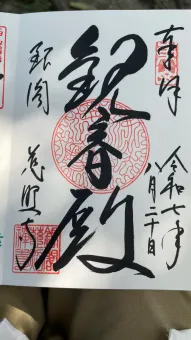 奉拝
令和七年
八月二十日
観音殿
銀閣
慈照寺